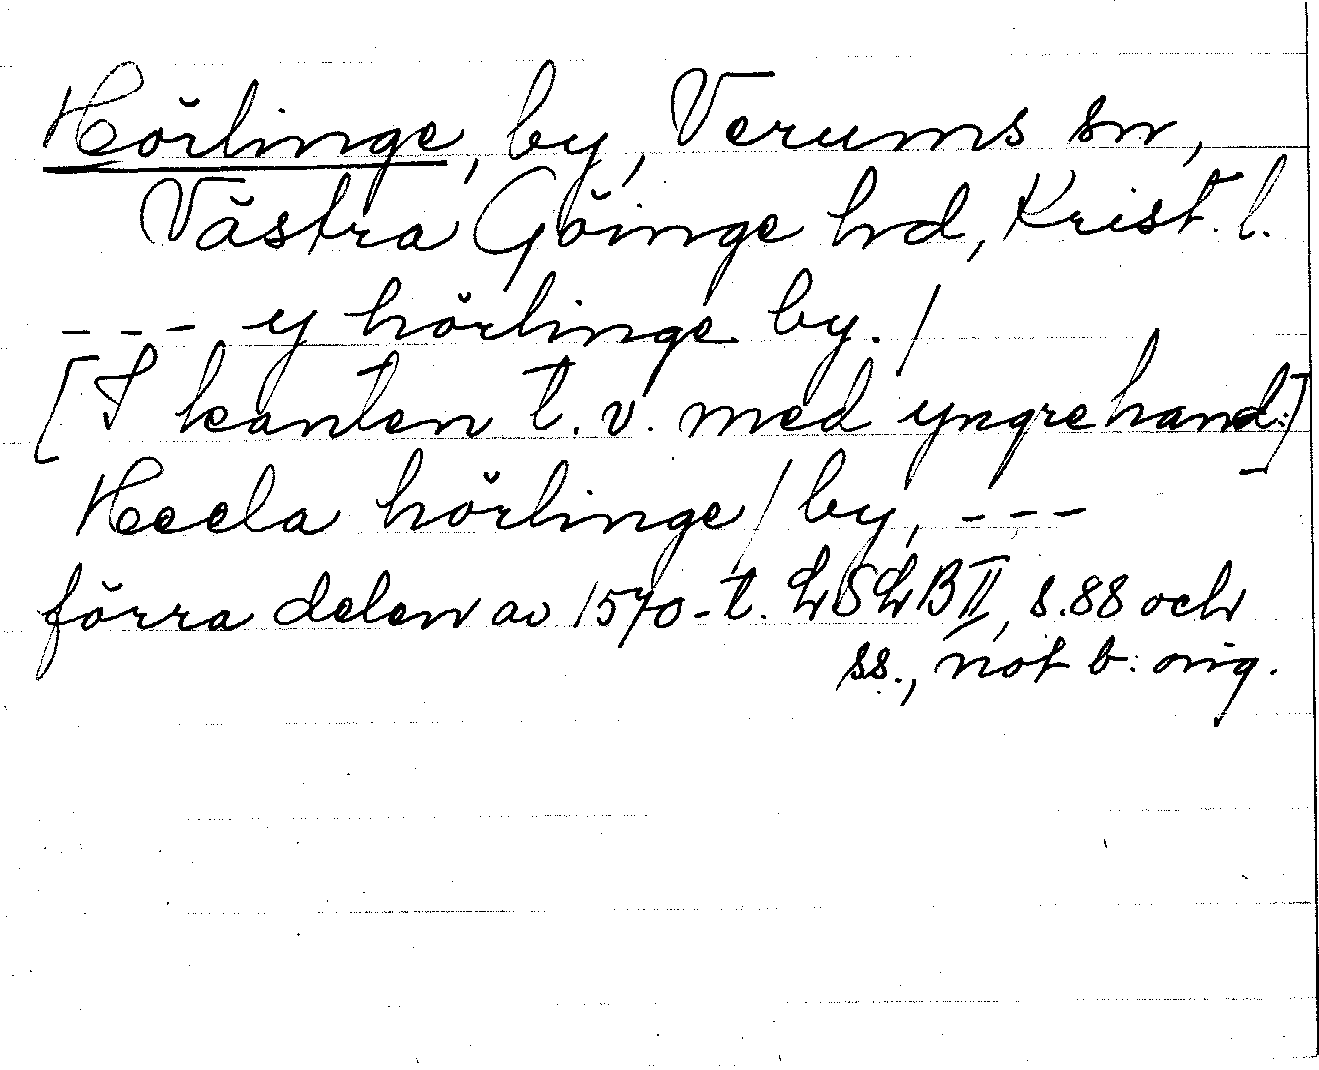 Hörlinge, by, Verums sn,
Västra Göinge hd, Krist. l.
--- y hörlinge by. /
[I kanten t. v. med yngre hand:]
Heela hörlinge / by, ---
förra delen av 1570-t. LSLB II, s. 88 och
ss., not b: orig.